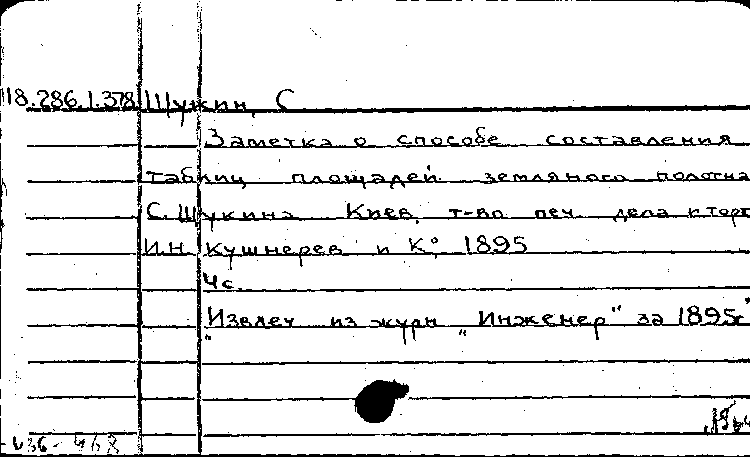 18.286.1.378 Щукин, С
Заметка о способе составления
таблиц площадей земляного полотна
С. Щукина. Киев, т-во печ. дела и торг
И.Н. Кушнерев и К°, 1895
4с.
"Извлеч из журн „Инженер" за 1895г"